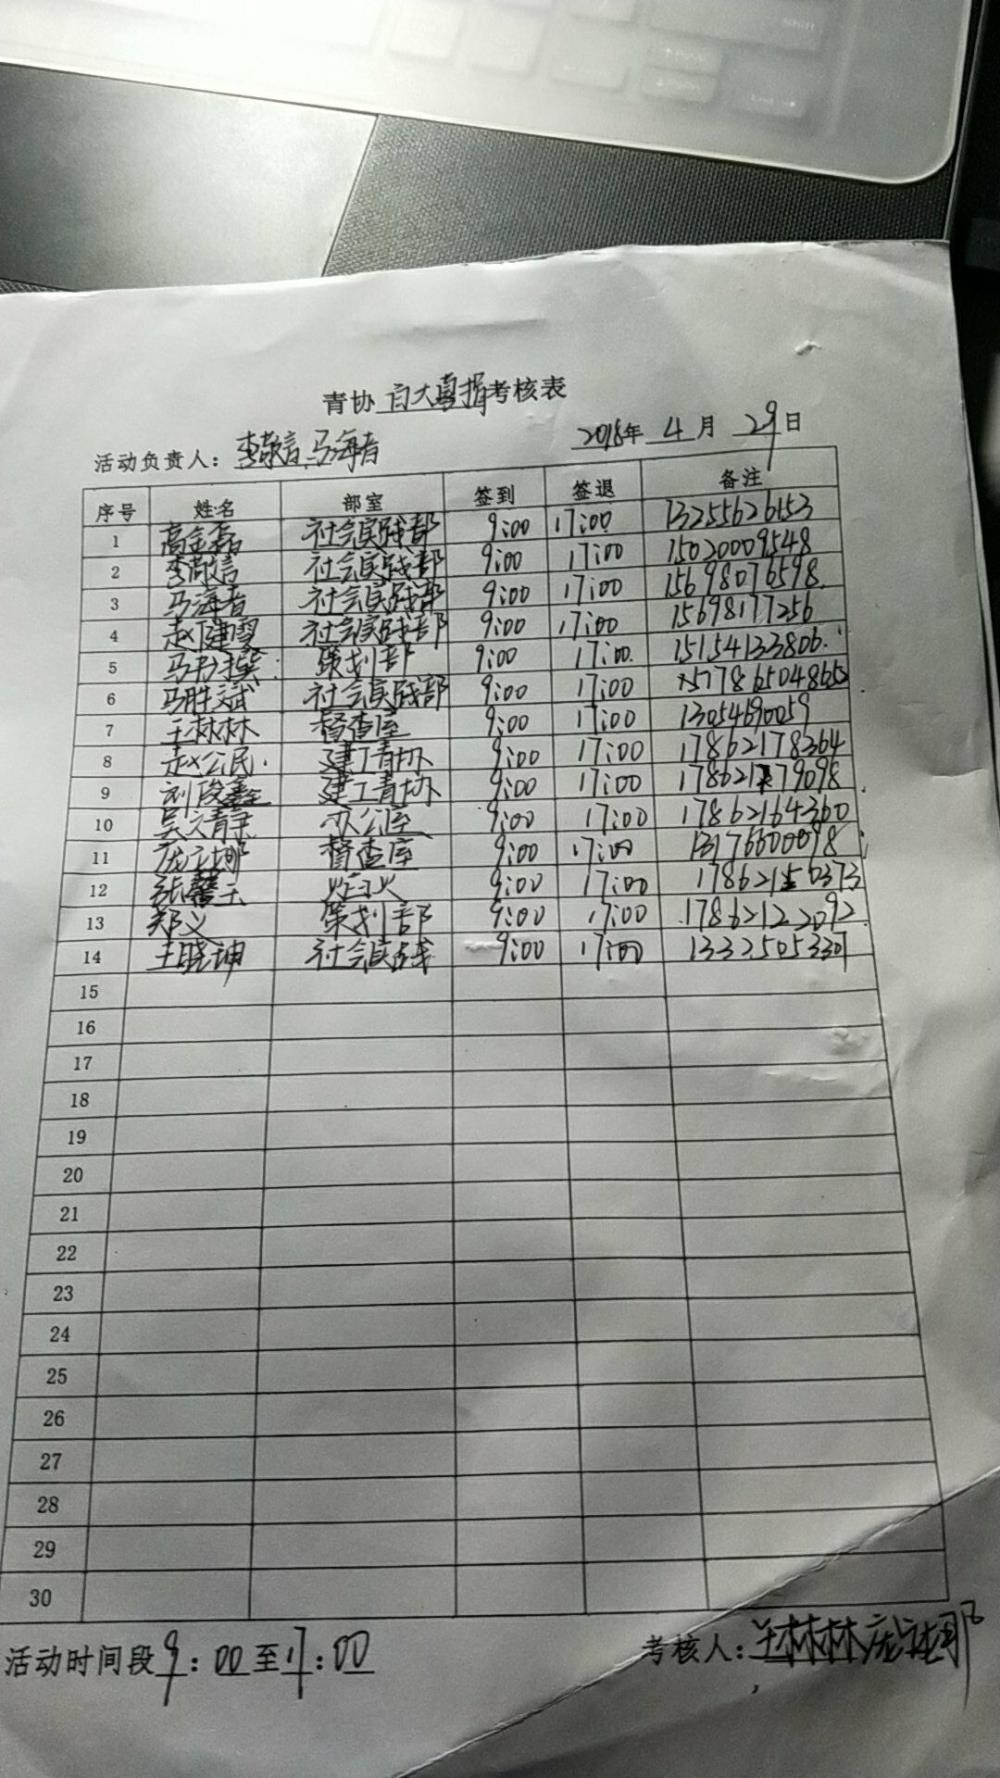 青协 百大喜捐考核表
活动负责人：李敬言、马海香 2018年 4 月 29日
序号 姓名 部室 签到 签退 备注
1 高金磊 社会实践部 9:00 17:00 13255626153
2 李敬言 社会实践部 9:00 17:00 15020009548
3 马海香 社会实践部 9:00 17:00 15698076598
4 赵健雪 社会实践部 9:00 17:00 15698177256
5 马 策划部 9:00 17:00 15154133806
6 马胜斌 社会实践部 9:00 17:00
7 王林林 督查室 9:00 17:00 13054690059
8 赵公民 建工青协 9:00 17:00 17862178364
9 刘俊鑫 建工青协 9:00 17:00 17862179098
10 吴文静 办公室 9:00 17:00 17862164360
11 庞 娜 督查室 9:00 17:00 13176600098
12 张馨 9:00 17:00
13 郑义 策划部 9:00 17:00 17862122092
14 王晓坤 社会实践 9:00 17:00 13325053307
15
16
17
18
19
20
21
22
23
24
25
26
27
28
29
30
活动时间段 9：00 至 17：00 考核人：王林林 庞 娜